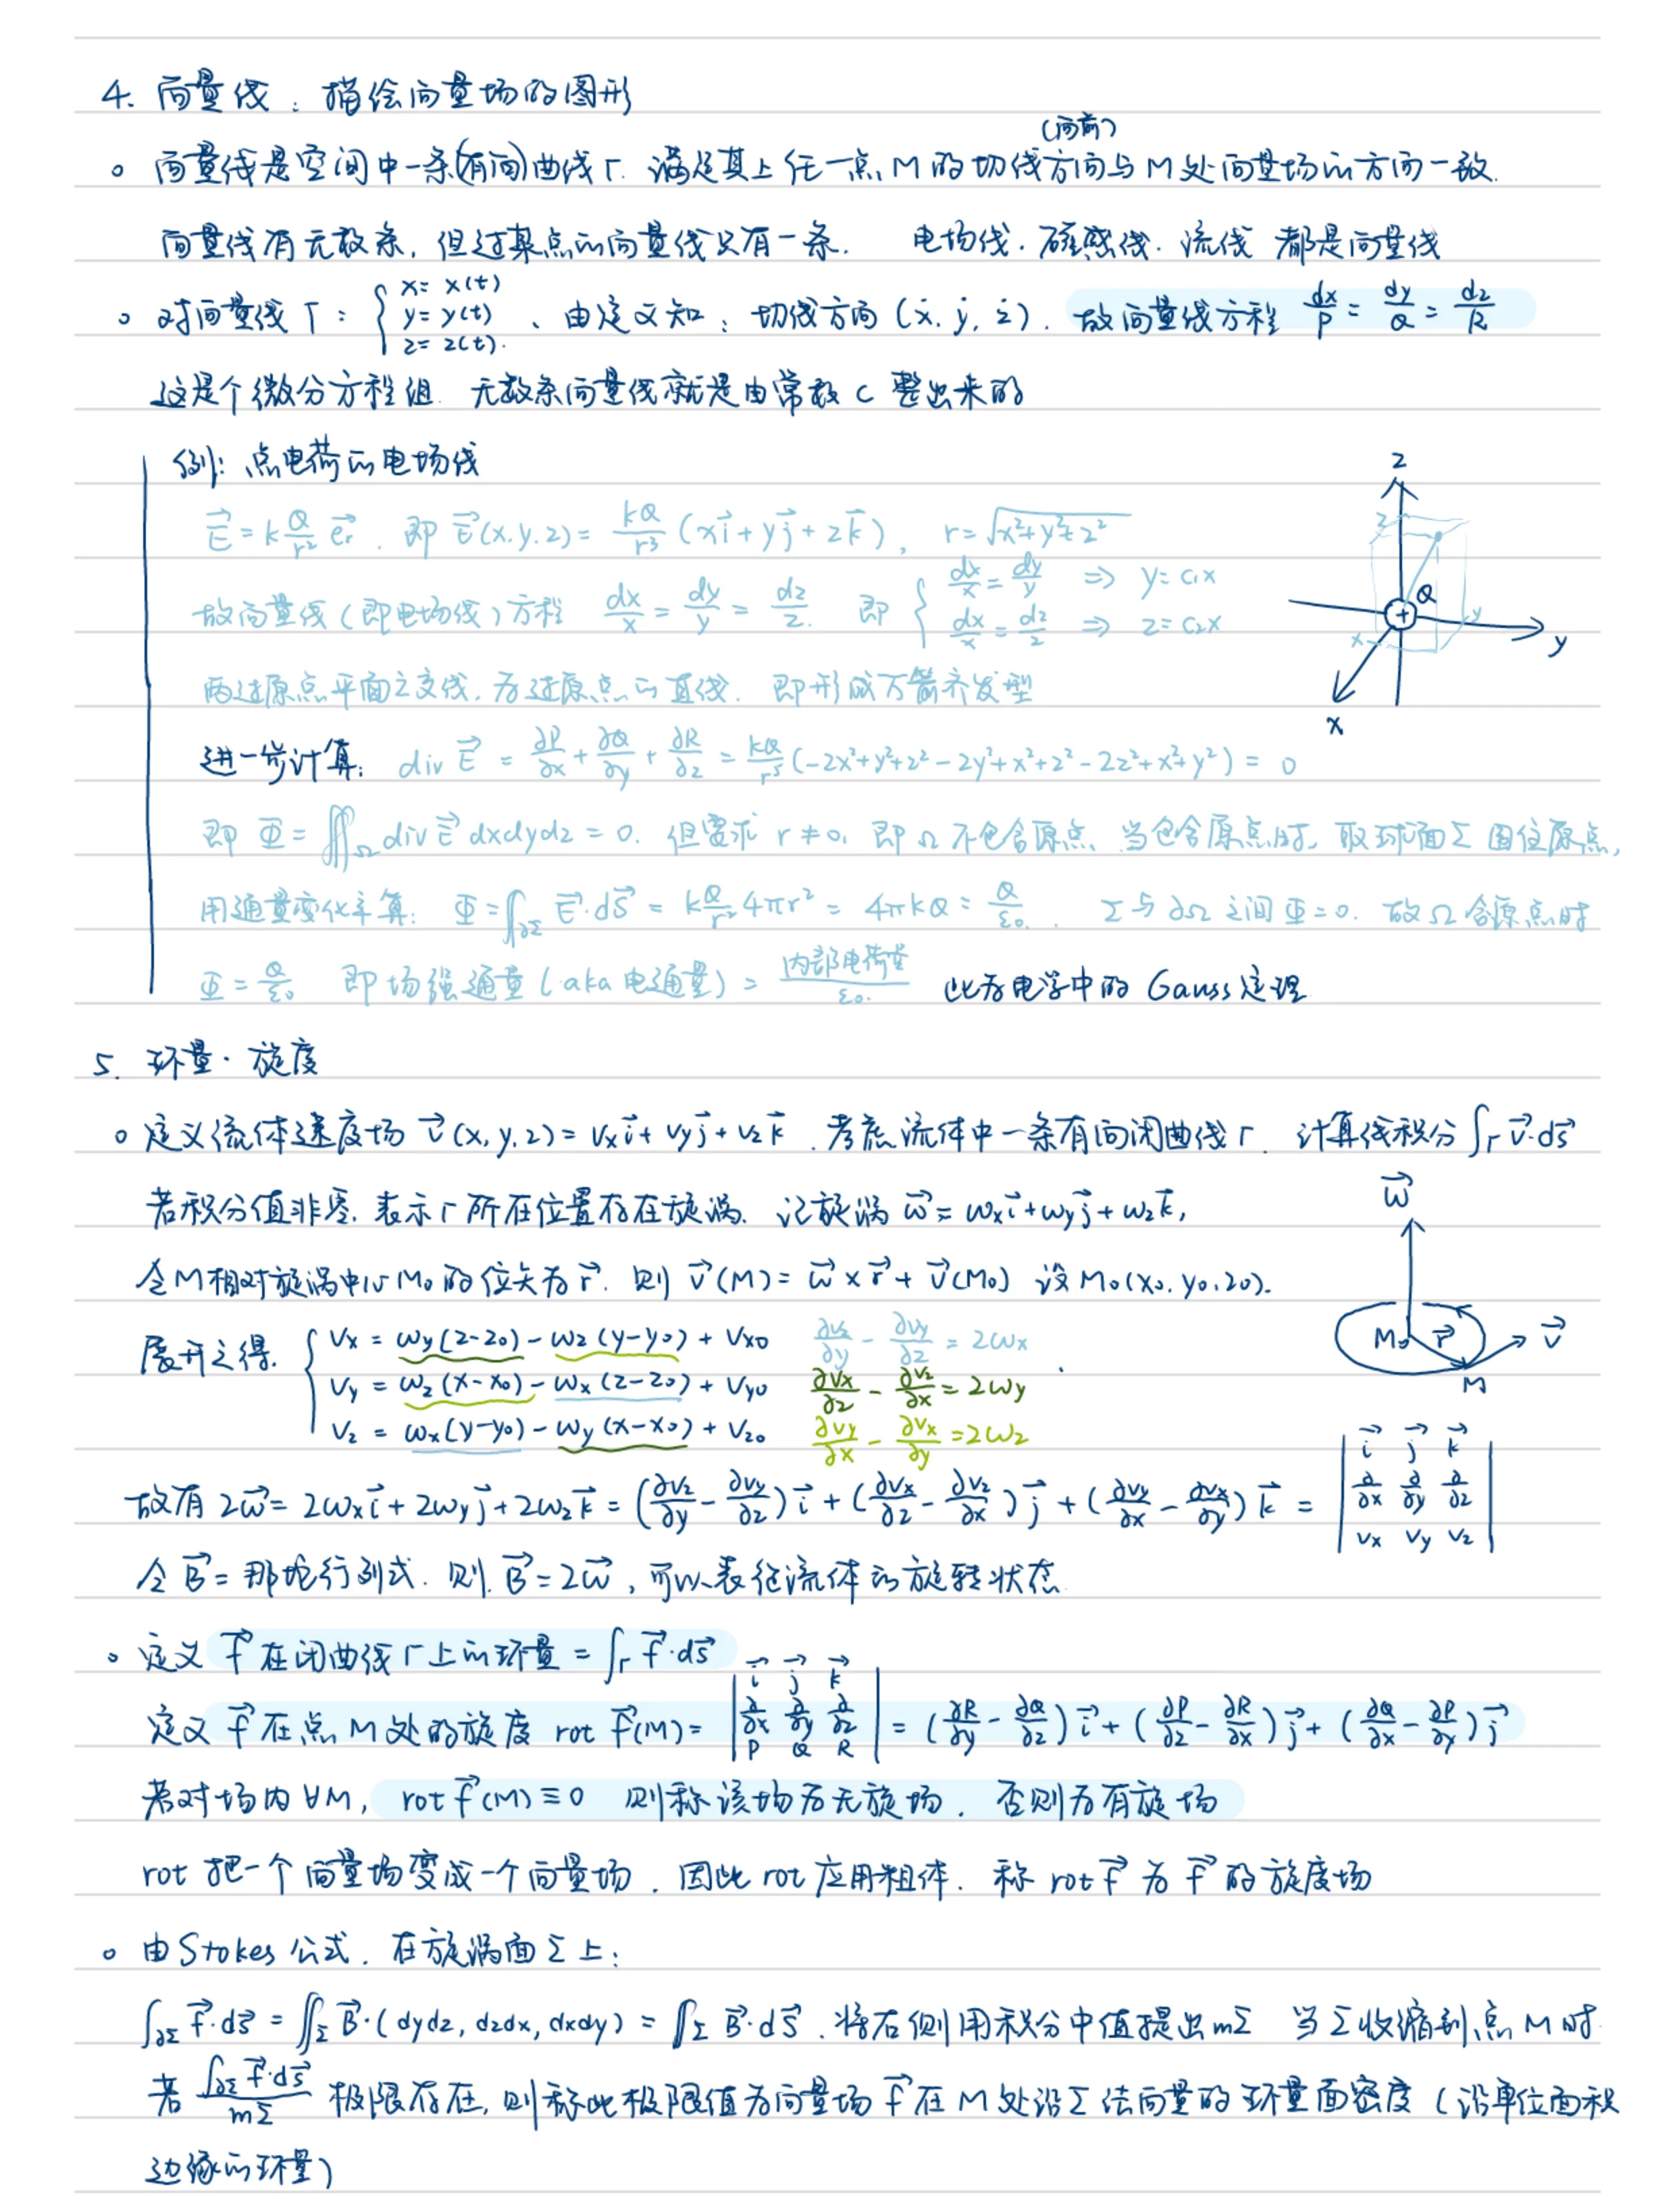 4. 向量线：描绘向量场的图形
(向前)
。 向量线是空间中一条(有向)曲线Γ. 满足其上任一点M的切线方向与M处向量场的方向一致.
向量线有无数条, 但过某点的向量线只有一条. 电场线. 磁感线. 流线 都是向量线
。 对向量线Γ: { x=x(t) y=y(t) z=z(t). 、由定义知: 切线方向(ẋ, ẏ, ż). 故向量线方程 dx/P = dy/Q = dz/R
这是个微分方程组. 无数条向量线就是由常数 C 整出来的
例: 点电荷的电场线
E⃗ = k Q/r² e⃗r. 即 E⃗(x.y.z) = kQ/r³ (xi⃗+yj⃗+zk⃗), r=√(x²+y²+z²)
故向量线(即电场线)方程 dx/x = dy/y = dz/z. 即 { dx/x = dy/y ⇒ y=c₁x dx/x = dz/z ⇒ z=c₂x
两过原点平面之交线, 为过原点的直线. 即形成万箭齐发型
z z Q x y y x
进一步计算: div E⃗ = ∂P/∂x + ∂Q/∂y + ∂R/∂z = kQ/r⁵ (-2x²+y²+z²-2y²+x²+z²-2z²+x²+y²) = 0
即 Φ = ∭Ω div E⃗ dxdydz = 0. 但要求 r≠0, 即Ω不包含原点. 当包含原点时, 取球面Σ围住原点,
用通量变化率算: Φ=∫∂Σ E⃗·dS⃗ = k Q/r² 4πr² = 4πkQ = Q/ε₀. Σ与∂Ω之间Φ=0. 故Ω含原点时
Φ = Q/ε₀ 即场强通量(aka电通量) = 内部电荷量/ε₀. 此为电学中的 Gauss 定理
5. 环量·旋度
。 定义流体速度场 v⃗(x,y,z)=vxi⃗+vyj⃗+vzk⃗. 考虑流体中一条有向闭曲线Γ. 计算线积分∫Γ v⃗·ds⃗
若积分值非零, 表示Γ所在位置存在旋涡. 记旋涡 ω⃗=ωxi⃗+ωyj⃗+ωzk⃗,
令M相对旋涡中心M₀的位矢为r⃗. 则 v⃗(M)=ω⃗×r⃗+v⃗(M₀) 设M₀(x₀,y₀,z₀).
展开之得. { vx = ωy(z-z₀)-ωz(y-y₀)+vx₀ ∂vz/∂y - ∂vy/∂z = 2ωx
vy = ωz(x-x₀)-ωx(z-z₀)+vy₀ ∂vx/∂z - ∂vz/∂x = 2ωy
vz = ωx(y-y₀)-ωy(x-x₀)+vz₀ ∂vy/∂x - ∂vx/∂y = 2ωz
ω⃗ M₀ r⃗ v⃗ M
故有 2ω⃗=2ωxi⃗+2ωyj⃗+2ωzk⃗ = (∂vz/∂y - ∂vy/∂z)i⃗ + (∂vx/∂z - ∂vz/∂x)j⃗ + (∂vy/∂x - ∂vx/∂y)k⃗ = | i⃗ j⃗ k⃗ ∂/∂x ∂/∂y ∂/∂z vx vy vz |
令B⃗=那坨行列式. 则. B⃗=2ω⃗, 可以表征流体的旋转状态.
。 定义 f⃗ 在闭曲线Γ上的环量 = ∫Γ f⃗·ds⃗
定义 f⃗ 在点M处的旋度 rot f⃗(M) = | i⃗ j⃗ k⃗ ∂/∂x ∂/∂y ∂/∂z P Q R | = (∂R/∂y - ∂Q/∂z)i⃗ + (∂P/∂z - ∂R/∂x)j⃗ + (∂Q/∂x - ∂P/∂y)j⃗
若对场内∀M, rot f⃗(M)≡0 则称该场为无旋场, 否则为有旋场
rot 把一个向量场变成一个向量场, 因此 rot 应用粗体. 称 rot f⃗ 为 f⃗ 的旋度场
。 由Stokes公式. 在旋涡面Σ上:
∫∂Σ f⃗·ds⃗ = ∬Σ B⃗·(dydz, dzdx, dxdy) = ∬Σ B⃗·dS⃗. 将右侧用积分中值提出mΣ 当Σ收缩到点M时.
若 ∫∂Σ f⃗·ds⃗/mΣ 极限存在, 则称此极限值为向量场 f⃗ 在M处沿Σ法向量的环量面密度(沿单位面积
边缘的环量)